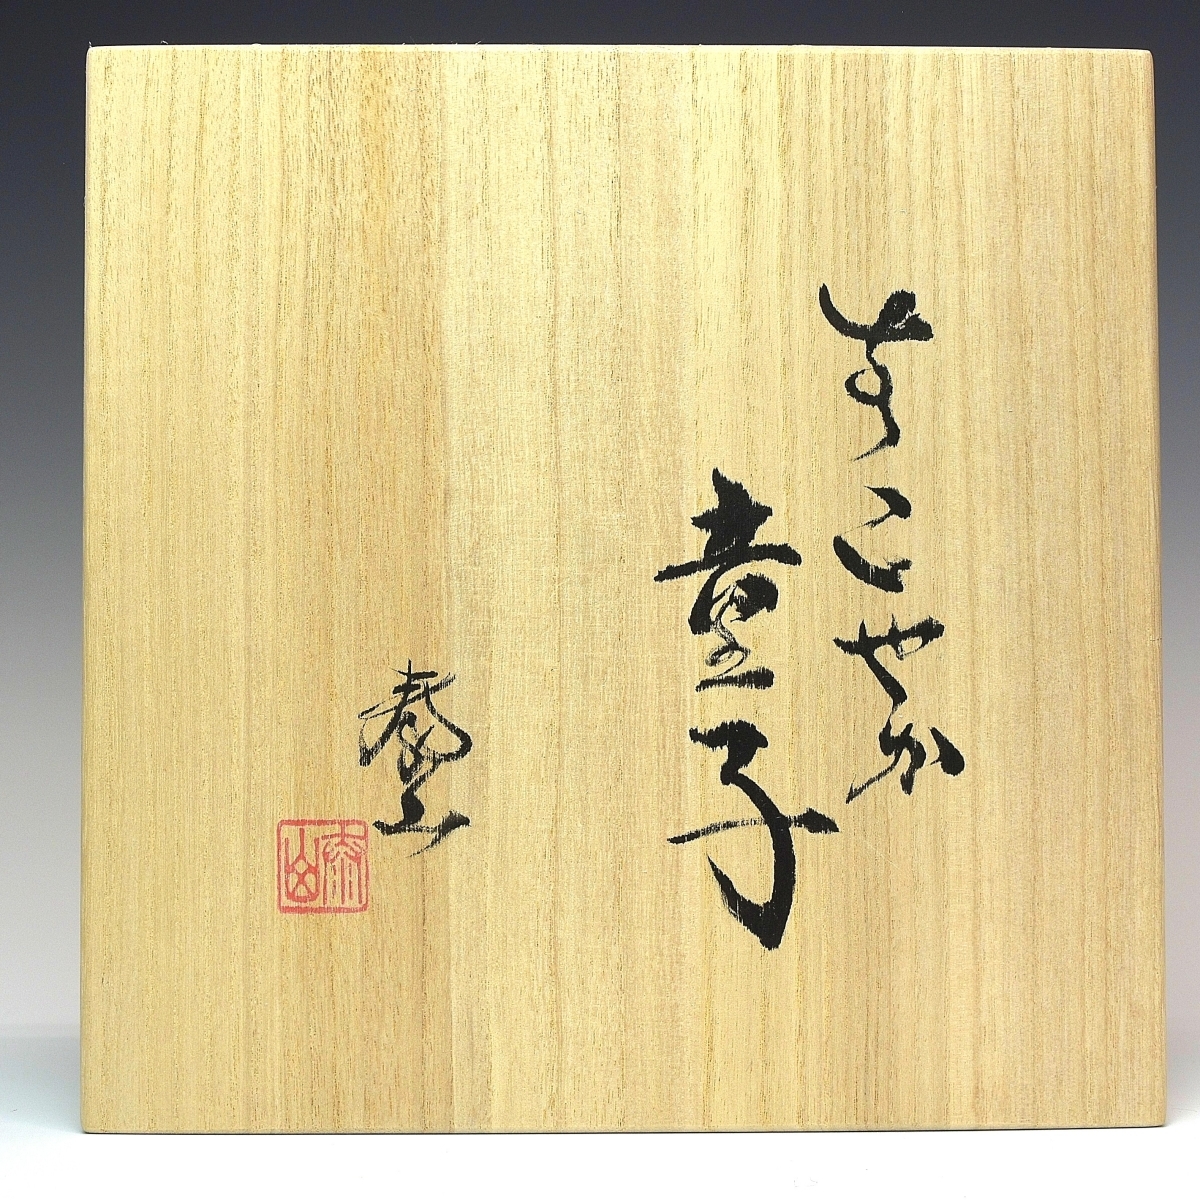 すこやか
童子
泰山
泰山